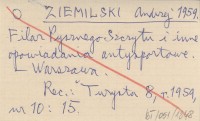 O ZIEMILSKI Andrzej 1959.
Filar Rysnego Szczytu i inne
opowiadania antysportowe.
Warszawa.
Rec.: Turysta 8, r. 1959,
nr 10: 15.